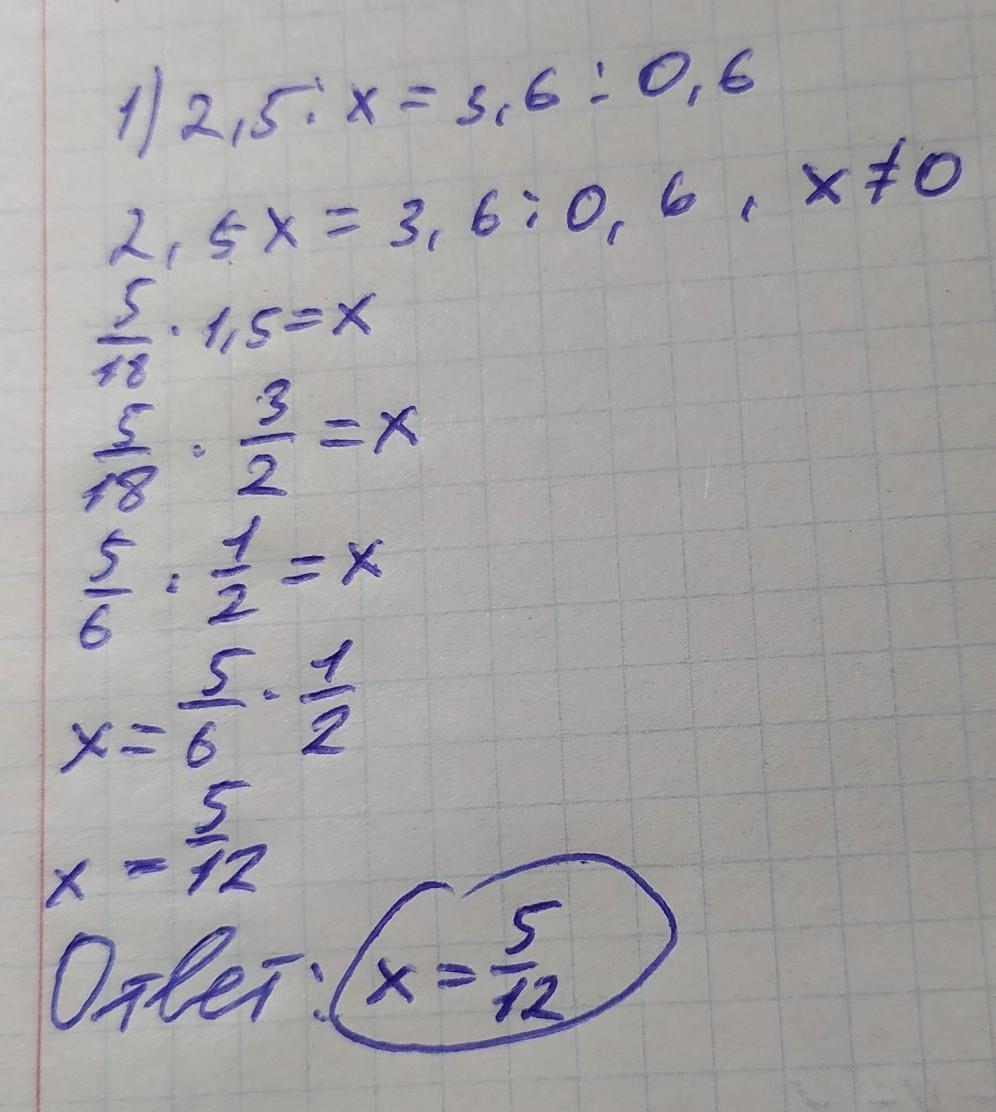 1) 2,5 : x = 3,6 : 0,6
2,5x = 3,6 : 0,6 , x ≠ 0
5/18 · 1,5 = x
5/18 · 3/2 = x
5/6 · 1/2 = x
x = 5/6 · 1/2
x = 5/12
Ответ: x = 5/12